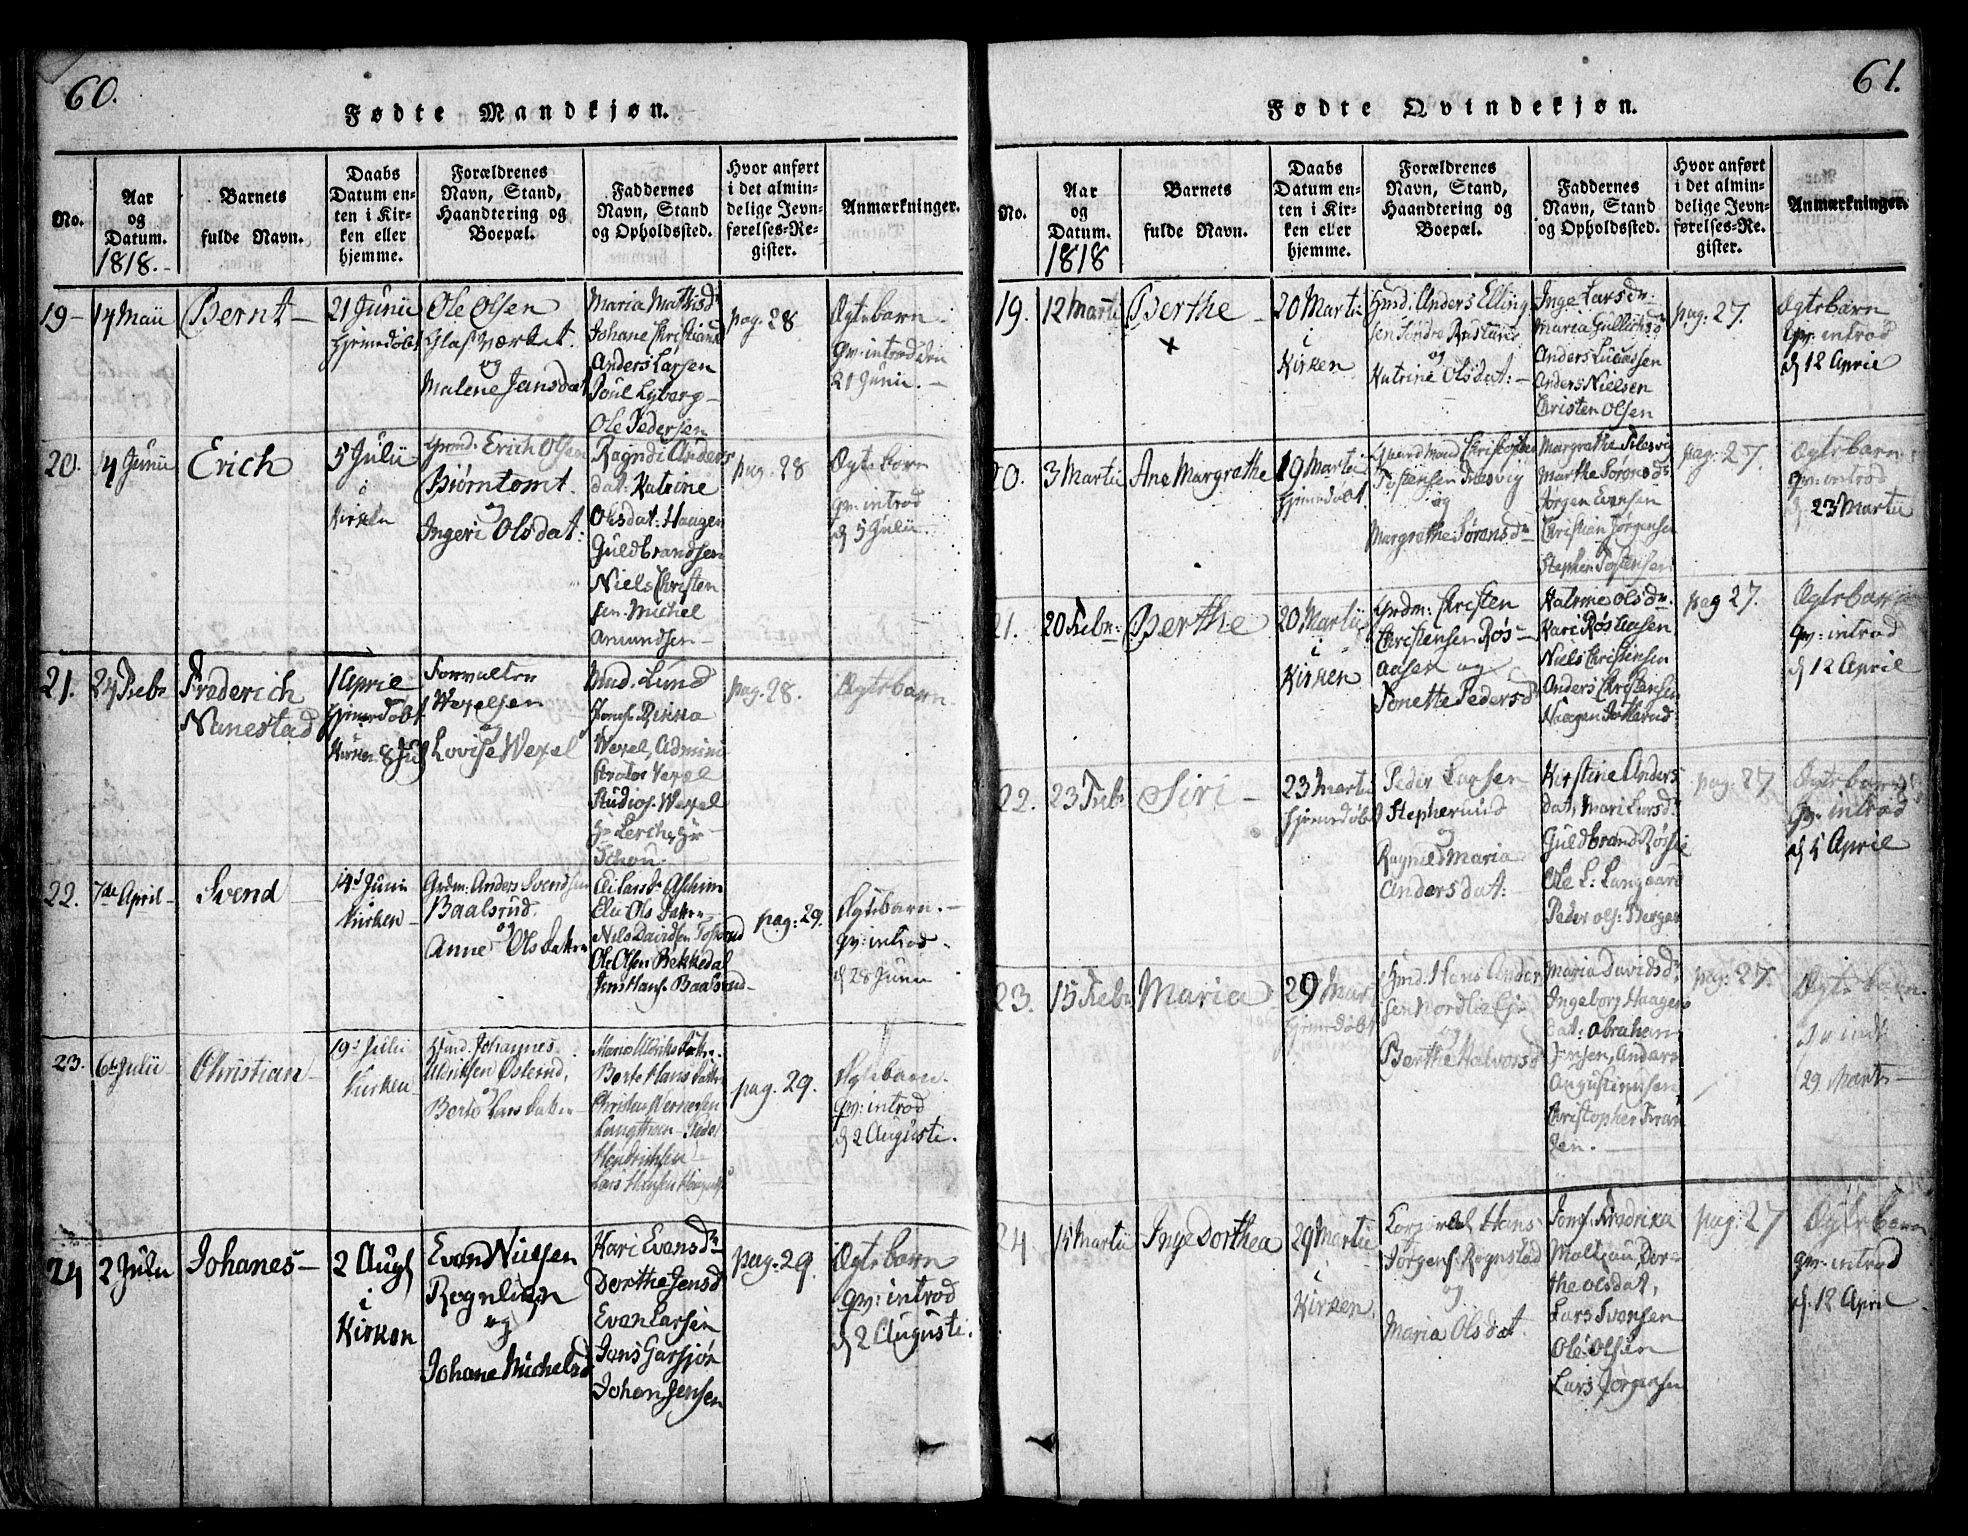 60.
Fødte Mandkjøn.
No.
Aar
og
Datum.
1818.
Barnets
fulde Navn.
Daabs
Datum en-
ten i Kir-
ken eller
hjemme.
Forældrenes
Navn, Stand,
Haandtering og
Boepæl.
Faddernes
Navn, Stand
og Opholdssted.
Hvor anført
i det almin-
delige Jevn-
førelses-Re-
gister.
Anmærkninger.
19
14 Maii
Bernt
21 Junii
Hjemedøbt
Ole Olsen
Glasværket.
og
Malene Jensdat
Maria Mathisd
Johane Christians
Anders Larsen
Poul Lyberg
Ole Pedersen
pag. 28
Ægtebarn
qv: introd den
21 Junii.
20.
14 Junii
Erich
5 Julii
i
Kirken
Grmd: Erich Olsen
Biørntomt.
og
Ingeri Olsdat:
Ragndi Anders
dat: Katrine
Olsdat: Haagen
Guldbrandsen
Niels Christen
sen. Michel
Amundsen
pag. 28
Ægtebarn
qv: introd
d 5 Julii
21.
24 Febr
Frederich
Nanestad
1 April
Hjemedøbt
Kirken 8 Jul
Forvalter
Wexelsen
og
Lovise Wexel
Mad. Lund
Jomf. Rikka
Wexel, Admini
strator Wexel
Studios. Wexel
Hr Lerche, Hr
Schou.
pag. 28.
Ægtebarn
22.
7de April
Svend
14d Junii
Kirken
Grdm: Anders Svendsen
Baalsrud.
og
Anne Ols Datter
Ole Olsen Bekkedal
Jens Hans. Baalsrud
pag: 29.
Ægtebarn.
qv: introd.
d 28 Junii
23.
6te Julii
Christian
19: Julii
Kirken
Hsmd. Johannes
Ulriksen Østerud,
og
Berte Lars Datter
Maria Ulriks Datter
Berte Hans Datter
pag. 29.
Ægtebarn.
qv: introd
d 2 Augusti.
24
2 Julii
Johanes
2 Augs
i
Kirken
Evan Nielsen
Rognlien
og
Johane Michelsd
Kari Evansdr
Dorthe Jensd
Evan Larsen
Jens Garsjør
Johan Jensen
pag. 29.
Ægtebarn
qv: introd
d 2 Augusti.
61.
Fødte Qvindekjøn.
No.
Aar
og
Datum.
1818
Barnets
fulde Navn.
Daabs
Datum en-
ten i Kir-
ken eller
hjemme.
Forældrenes
Navn, Stand,
Haandtering og
Boepæl.
Faddernes
Navn, Stand
og Opholdssted.
Hvor anført
i det almin-
delige Jevn-
førelses-Re-
gister.
Anmærkninger.
19.
12 Martii
Berthe
x
20 Martii
i
Kirken
Hsmd: Anders Elling
sen Søndre Krustarud
og
Katrine Olsdat:
Inge Larsdr:
Maria Gullichsdr
Anders Lucassen
Anders Nielsen
Christen Olsen
pag: 27.
Ægtebarn
qv: introd
d 12 April
20.
3 Martii
Ane Margrethe
19 Martii
Hjemedøbt
Gaardmand Christopher
Tostensen Tilesvig
og
Margrethe Sørensdr
Margrethe Tilesvig
Marthe Sørensdr
Jørgen Evensen
Christian Jørgensen
Stephen Tostensen
pag: 27.
Ægtebarn
qv: introd
d. 23 Martii
21.
20 Febr:
Berthe
20 Martii
i
Kirken
Grdm: Christen
Christensen Røs-
aasen og
Tonette Pedersd
Katrine Olsdr.
Kari Røsaasen
Niels Christensen
Anders Christensen
pag 27.
Ægtebarn
qv: introd
d 12 April
22.
23 Febr
Siri
23 Martii
Hjemedøbt
Peder Larsen
Stepherud
og
Ragnild Maria
Andersdat:
Kirstine Anders
dat, Mari Larsd
Guldbrand Røise
Ole L: Langaard
Peder Ols: Berger
pag: 27
Ægtebarn
qv. introd
d 5 April
23.
15 Febr
Maria
29 Mart
Hjemedøbt
Hsmd. Hans Ander
sen Nordlie Eje
og
Berthe Halvorsd
Maria Davidsd
Ingeborg Haagens
dat: Abraham
Jensen, Anders
Augustinusen
Christopher Fran
sen.
pag: 27.
Ægtebarn.
introd
29 Marti
24
15 Martii
Inge Dorthea
29 Martii
i
Kirken.
Corporal Hans
Jørgens. Rognstad
og
Maria Olsdat.
Jomf. Fredrika
Maltzau, Dor-
the Olsdat,
Lars Svensen
Ole Olsen
Lars Jørgensen
pag: 27
Ægtebarn
qv: introd
d. 12 April